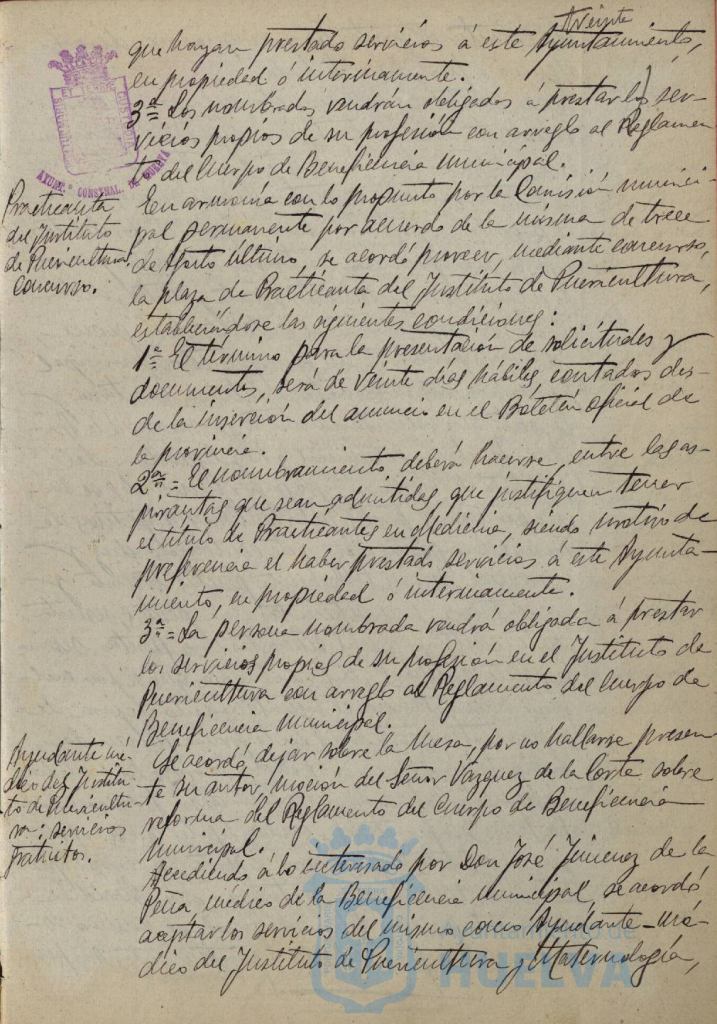 Veinte
que hayan prestado servicios á este Ayuntamiento,
en propiedad ó interinamente.
3ª = Los nombrados vendrán obligados á prestar los ser-
vicios propios de su profesión con arreglo al Reglamen
to del Cuerpo de Beneficencia municipal.
AYUNT.º CONSTNAL. DE HUELVA
Practicanta
del Instituto
de Puericultura.
Concurso.
En armonía con lo propuesto por la Comisión munici-
pal permanente por acuerdo de la misma de trece
de Agosto último, se acordó proveer, mediante concurso,
la plaza de Practicanta del Instituto de Puericultura,
estableciéndose las siguientes condiciones:
1ª = El término para la presentación de solicitudes y
documentos, será de veinte días hábiles, contados des-
de la inserción del anuncio en el Boletín oficial de
la provincia.
2ª = El nombramiento deberá hacerse, entre las as-
pirantas que sean admitidas, que justifiquen tener
el título de Practicantes en Medicina, siendo motivo de
preferencia el haber prestado servicios á este Ayunta-
miento, en propiedad ó interinamente.
3ª = La persona nombrada vendrá obligada á prestar
los servicios propios de su profesión en el Instituto de
Puericultura con arreglo al Reglamento del Cuerpo de
Beneficencia municipal.
Se acordó dejar sobre la mesa, por no hallarse presen
te su autor, moción del Señor Vazquez de la Corte sobre
reforma del Reglamento del Cuerpo de Beneficencia
municipal.
Ayudante mé-
dico del Institu
to de Puericultu-
ra: servicios
gratuitos.
Accediendo á lo interesado por Don José Jimenez de la
Peña, médico de la Beneficencia municipal, se acordó
aceptar los servicios del mismo como Ayudante-mé-
dico del Instituto de Puericultura y Maternología,
Ayuntamiento de
HUELVA